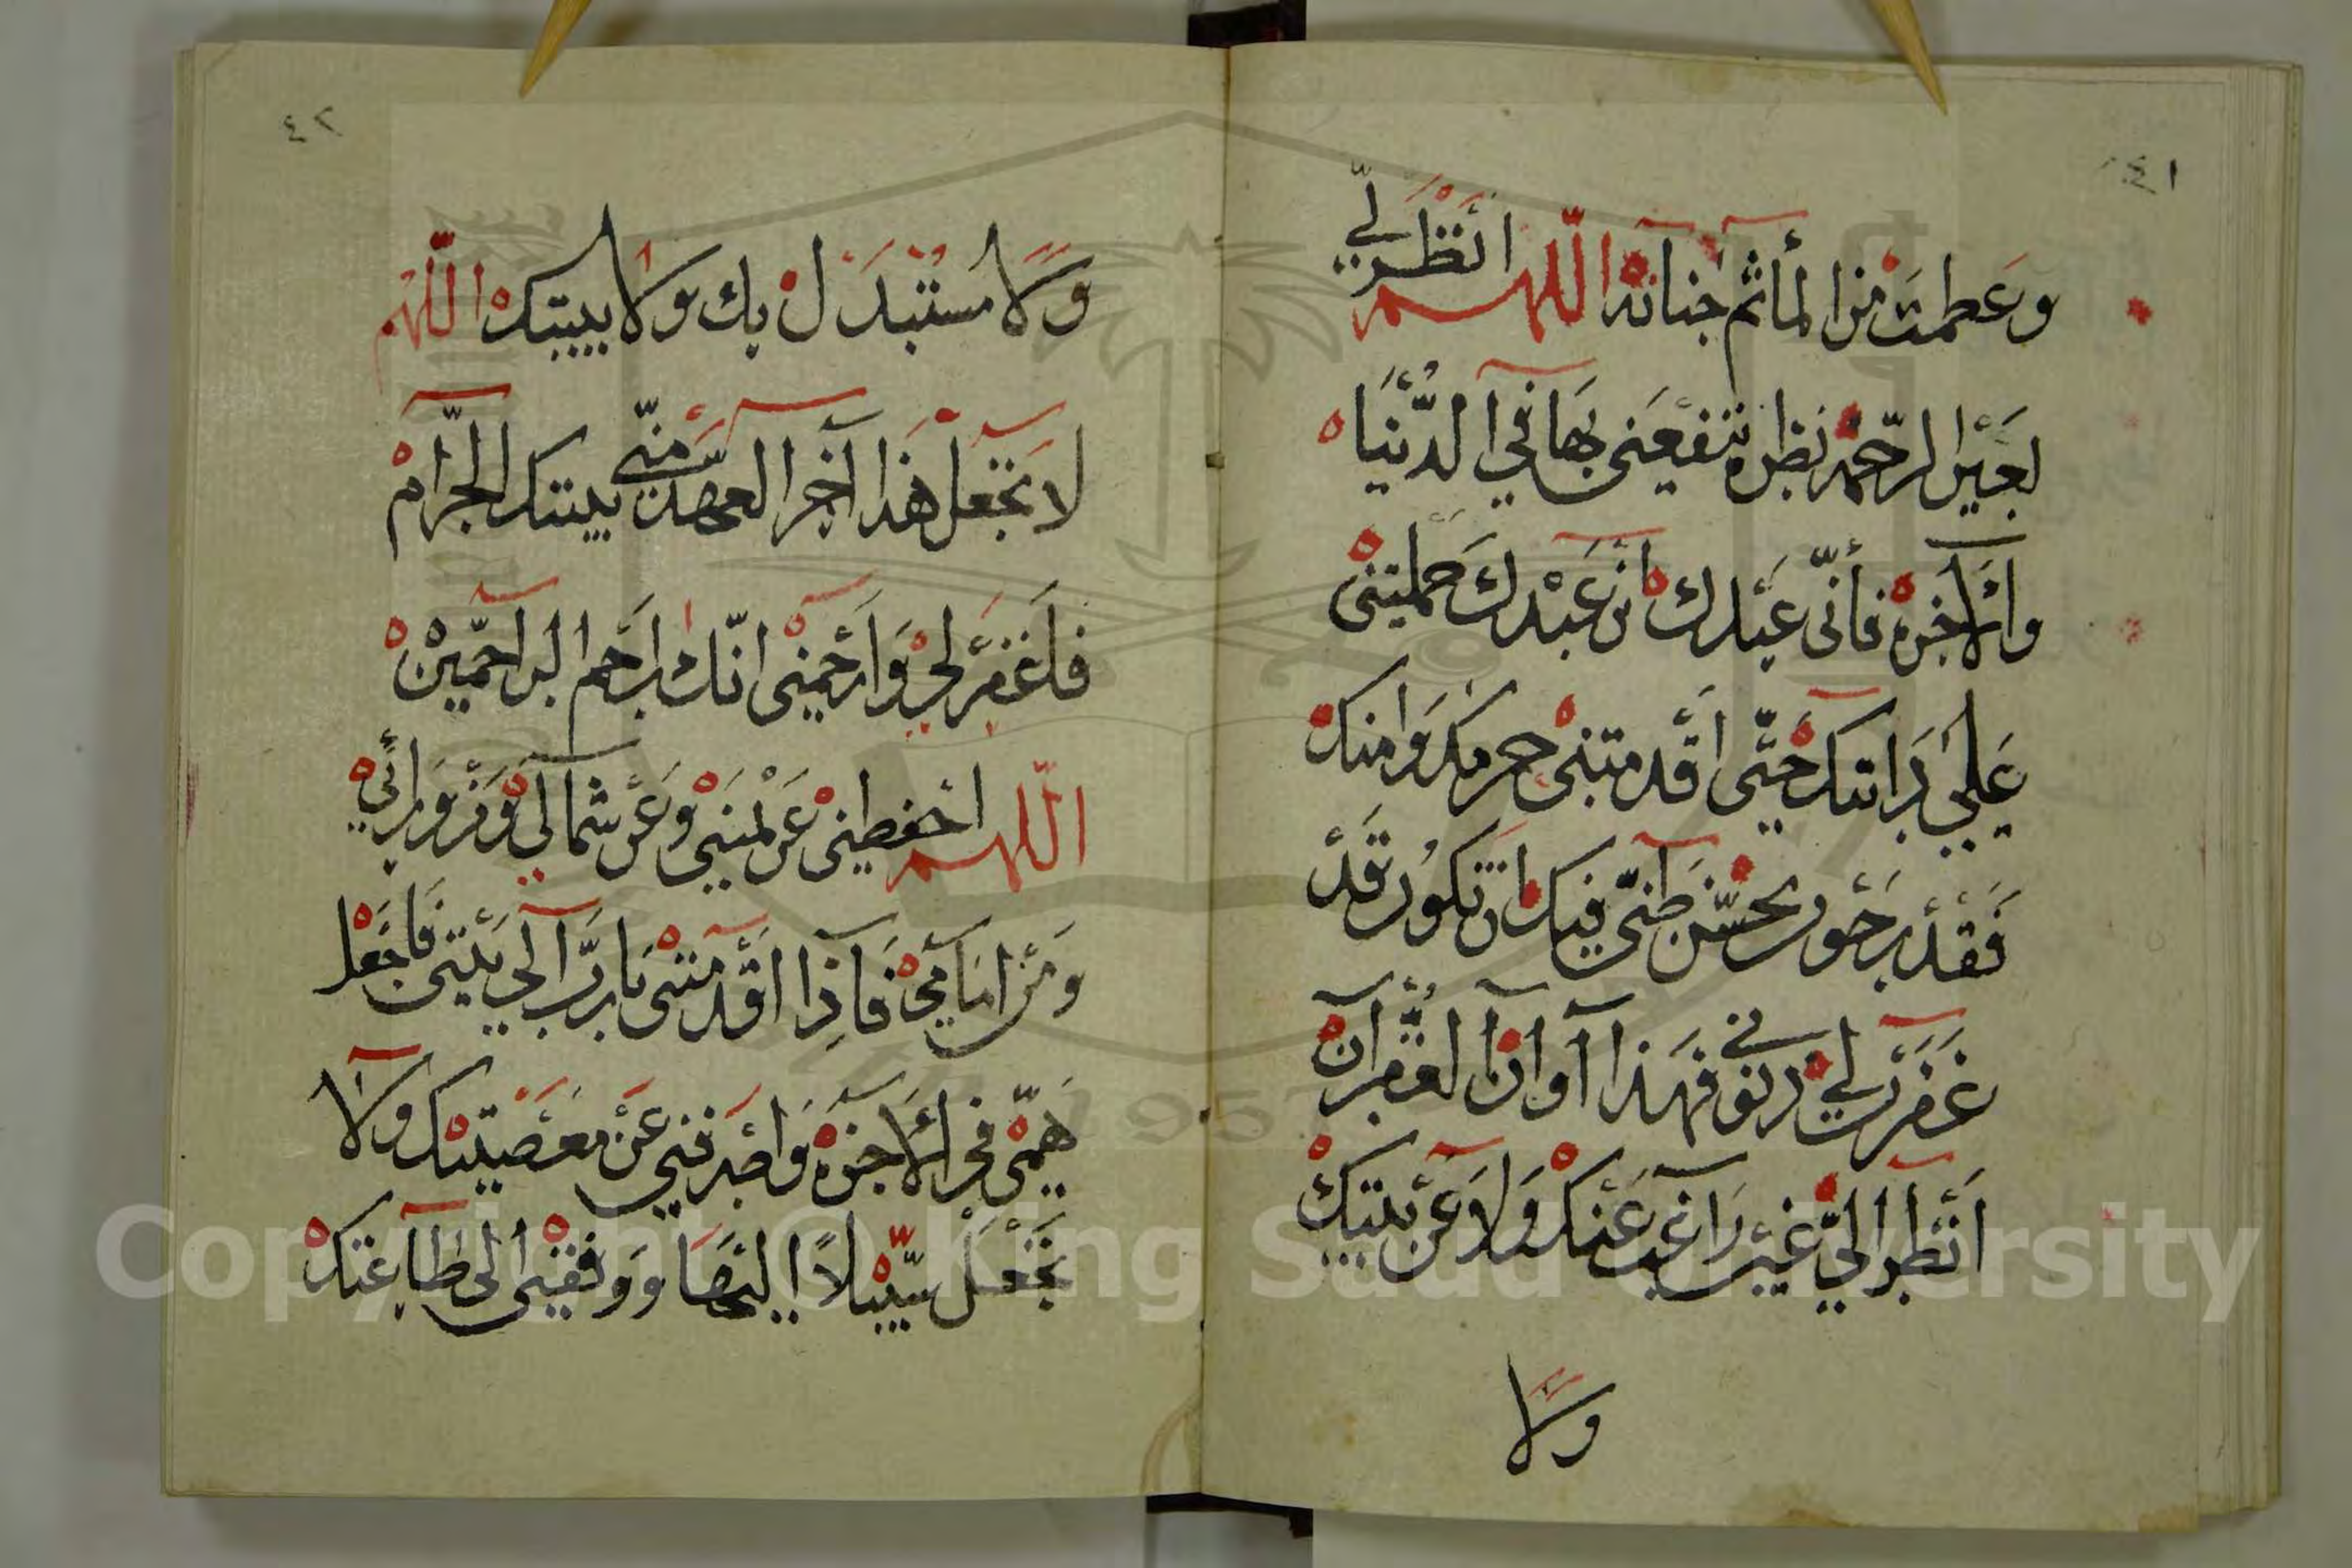 ٤١
وعطمت من المأثم جنانه اللهم انظر لي
بعين الرحمة نظرة تنفعني بها في الدنيا
والآخرة فأني عبدك ان عبدك حملتني
علي دابتك حتى اقدمتني حرمك وامنك
فقد رجوت بحسن ظني فيك ان تكون قد
غفرت لي دنوني فهذا آوان الغفران
انظر الي غير راغب عنك ولا عن بيتك
ولا
٤٢
ولا مستبدل بك ولا ببيتك اللهم
لا تجعل هذا آخر العهد مني ببيتك الحرام
فاغفر لي وارحمني انك ارحم الراحمين
اللهم احفطني عن يميني وعن شمالي ومن ورائي
ومن امامي فاذا اقدمتني يا رب الي بيتي فاجعل
همي في الاخرة واصرفني عن معصيتك ولا
تجعل سبيلا اليها ووفقني الى طاعتك
Copyright © King Saud University
1957